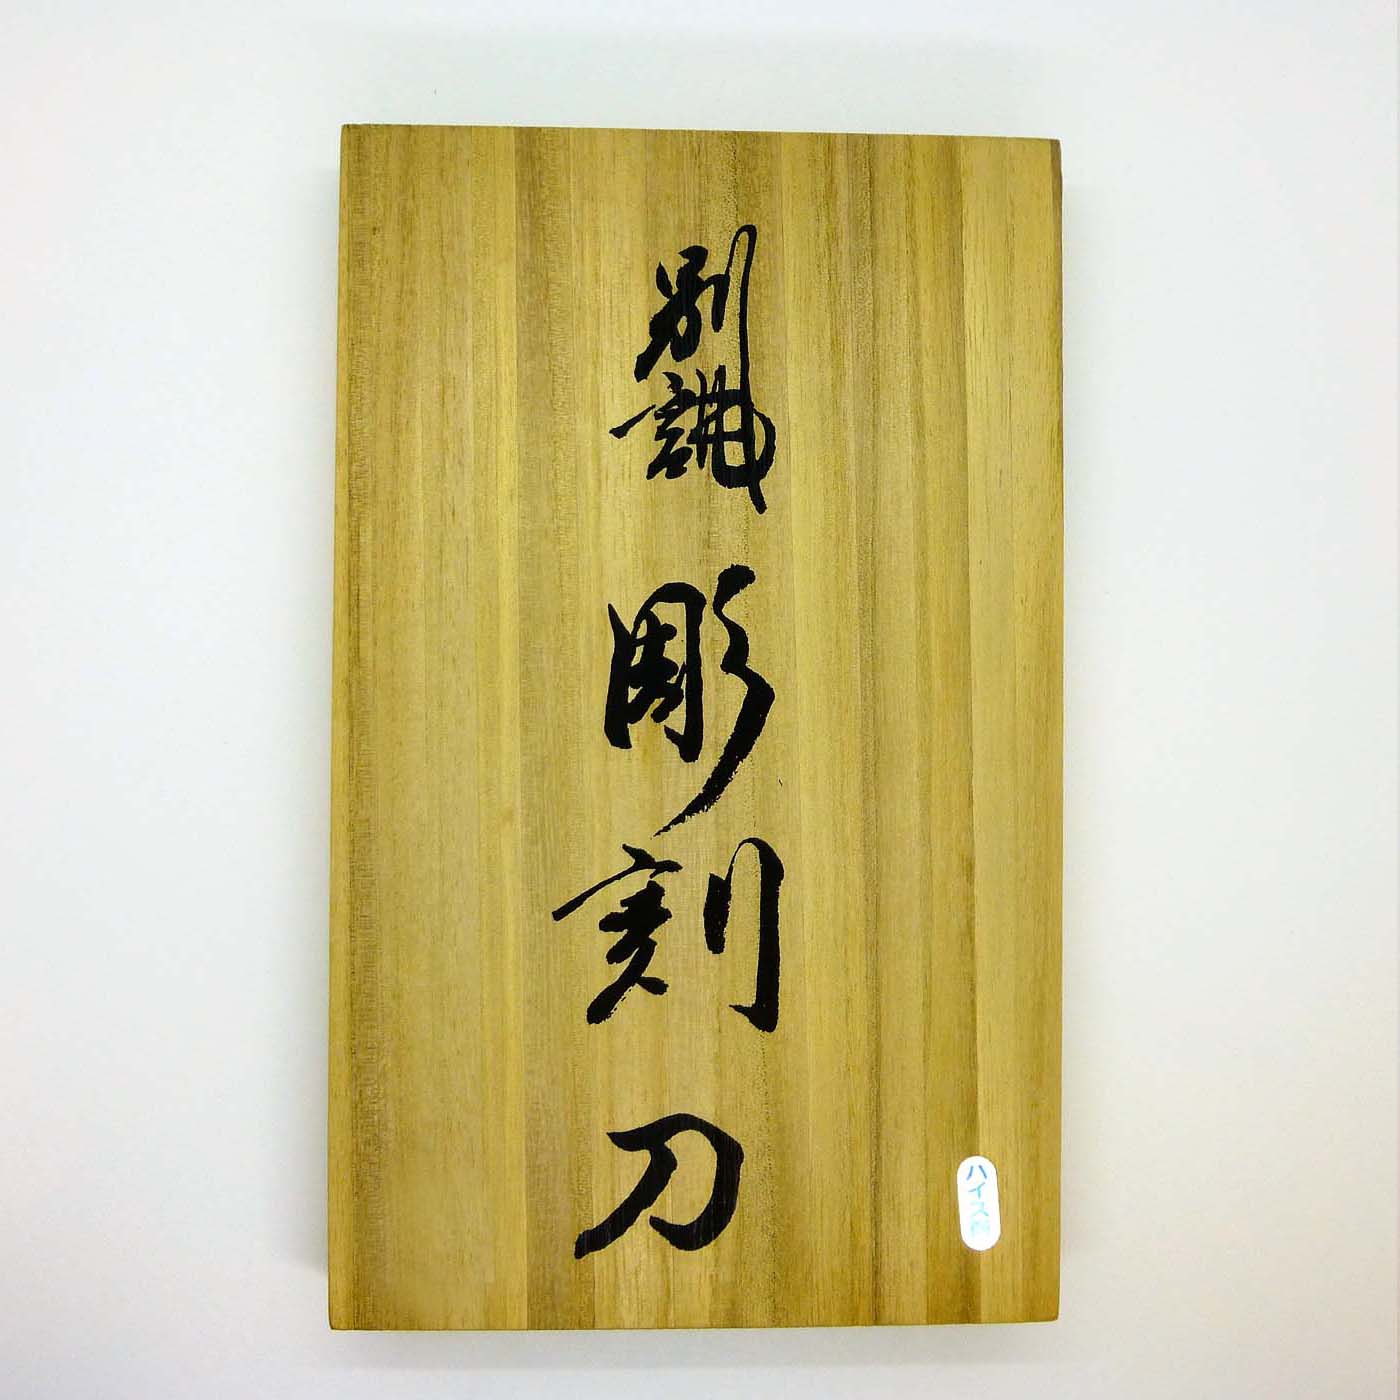 別誂
彫刻刀
ハイス鋼